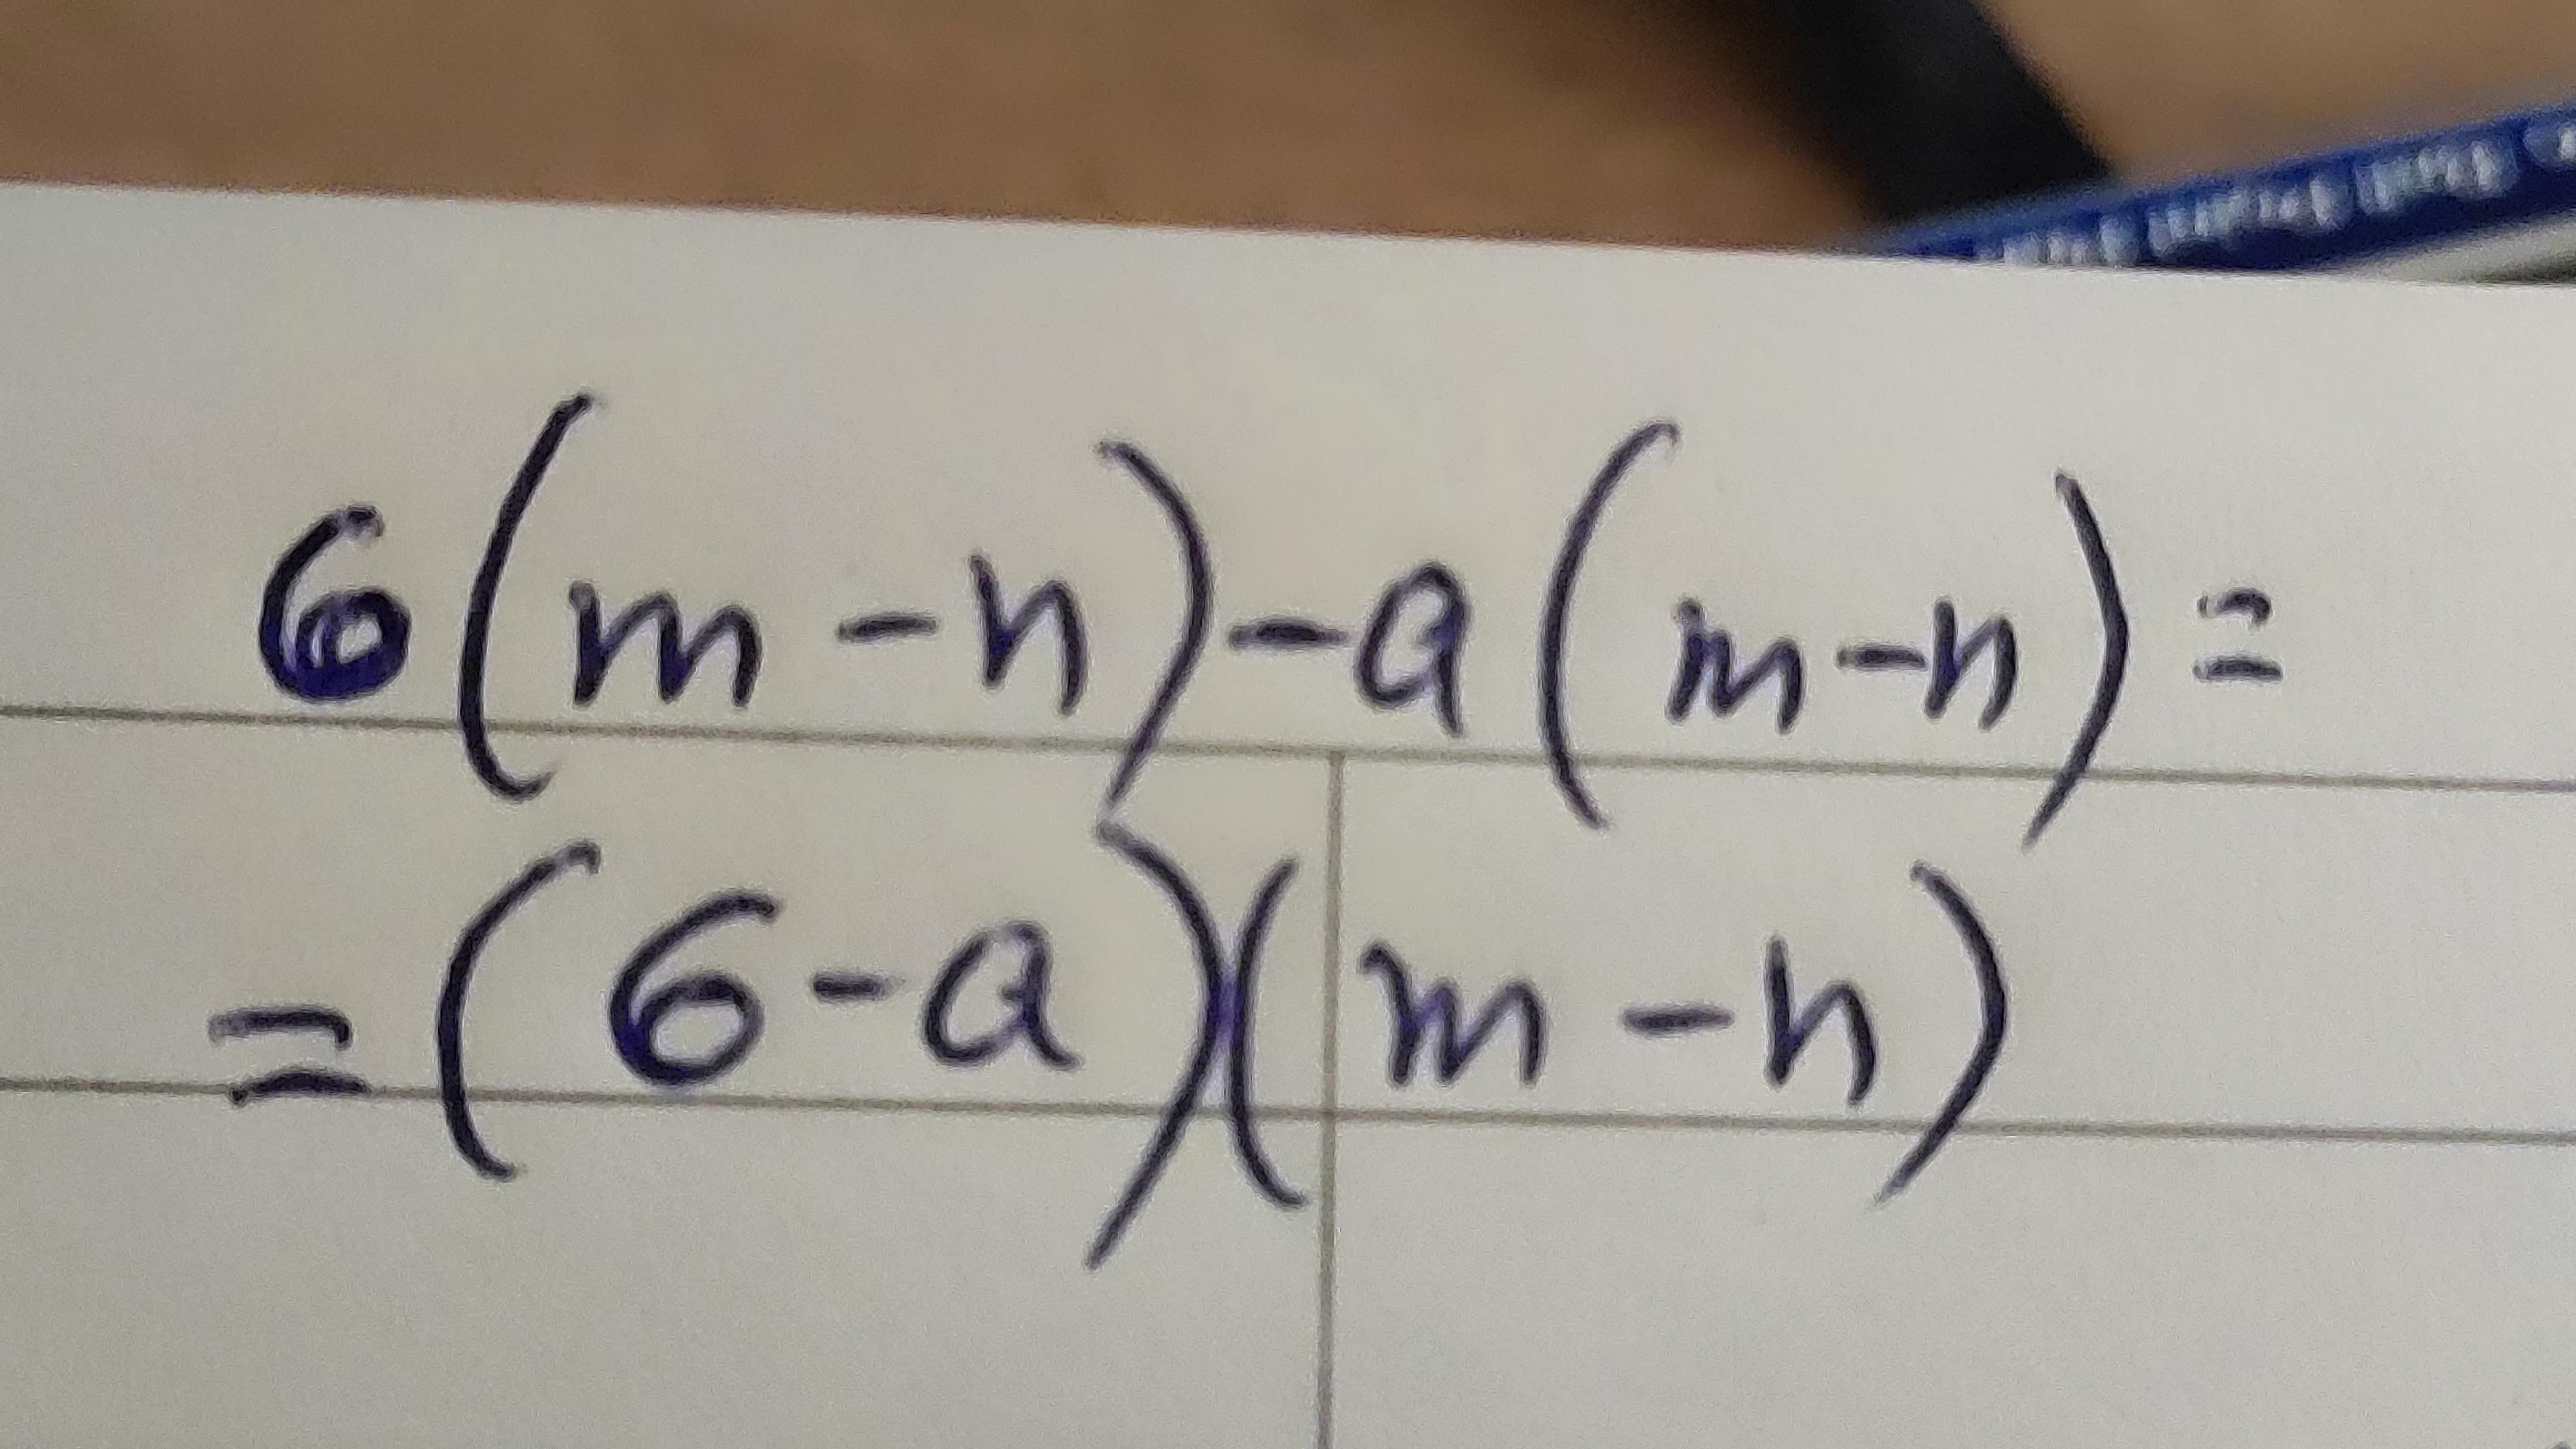 6(m-n)-a(m-n)=
=(6-a)(m-n)